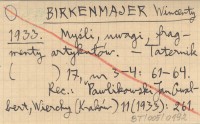 BIRKENMAJER Wincenty
1933. Myśli, uwagi, frag-
menty artykułów. Taternik
( ) 17, nr 3-4: 61-64.
Rec.: Pawlikowski Jan Gwal-
bert, Wierchy (Kraków) 11 (1933): 261.
BT/001/0492